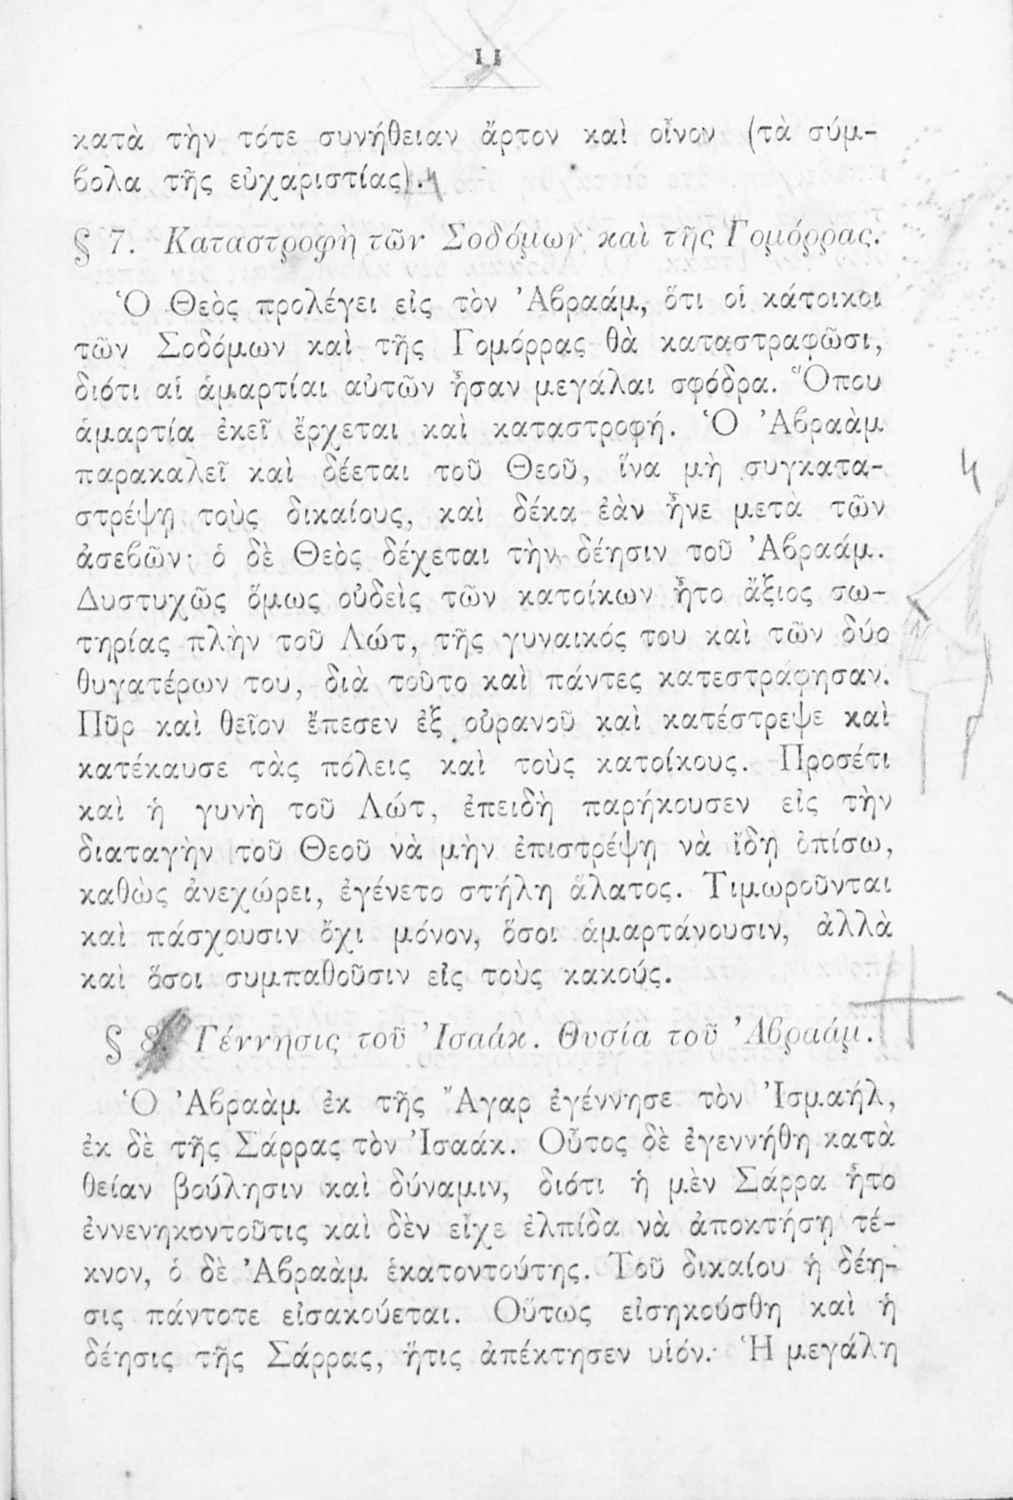 11
κατὰ τὴν τότε συνήθειαν ἄρτον καὶ οἶνον (τὰ σύμ-
βολα τῆς εὐχαριστίας).
§ 7. Καταστροφὴ τῶν Σοδόμων καὶ τῆς Γομόῤῥας.
Ὁ Θεὸς προλέγει εἰς τὸν Ἀβραάμ, ὅτι οἱ κάτοικοι
τῶν Σοδόμων καὶ τῆς Γομόρρας θὰ καταστραφῶσι,
διότι αἱ ἁμαρτίαι αὐτῶν ἦσαν μεγάλαι σφόδρα. Ὅπου
ἁμαρτία ἐκεῖ ἔρχεται καὶ καταστροφή. Ὁ Ἀβραὰμ
παρακαλεῖ καὶ δέεται τοῦ Θεοῦ, ἵνα μὴ συγκατα-
στρέψῃ τοὺς δικαίους, καὶ δέκα ἐὰν ἦνε μετὰ τῶν
ἀσεβῶν· ὁ δὲ Θεὸς δέχεται τὴν δέησιν τοῦ Ἀβραάμ.
Δυστυχῶς ὅμως οὐδεὶς τῶν κατοίκων ἦτο ἄξιος σω-
τηρίας πλὴν τοῦ Λώτ, τῆς γυναικός του καὶ τῶν δύο
θυγατέρων του, διὰ τοῦτο καὶ πάντες κατεστράφησαν.
Πῦρ καὶ θεῖον ἔπεσεν ἐξ οὐρανοῦ καὶ κατέστρεψε καὶ
κατέκαυσε τὰς πόλεις καὶ τοὺς κατοίκους. Προσέτι
καὶ ἡ γυνὴ τοῦ Λώτ, ἐπειδὴ παρήκουσεν εἰς τὴν
διαταγὴν τοῦ Θεοῦ νὰ μὴν ἐπιστρέψῃ νὰ ἴδῃ ὀπίσω,
καθὼς ἀνεχώρει, ἐγένετο στήλη ἅλατος. Τιμωροῦνται
καὶ πάσχουσιν ὄχι μόνον, ὅσοι ἁμαρτάνουσιν, ἀλλὰ
καὶ ὅσοι συμπαθοῦσιν εἰς τοὺς κακούς.
§ 8. Γέννησις τοῦ Ἰσαάκ. Θυσία τοῦ Ἀβραάμ.
Ὁ Ἀβραὰμ ἐκ τῆς Ἄγαρ ἐγέννησε τὸν Ἰσμαήλ,
ἐκ δὲ τῆς Σάρρας τὸν Ἰσαάκ. Οὗτος δὲ ἐγεννήθη κατὰ
θείαν βούλησιν καὶ δύναμιν, διότι ἡ μὲν Σάρρα ἦτο
ἐννενηκοντοῦτις καὶ δὲν εἶχε ἐλπίδα νὰ ἀποκτήσῃ τέ-
κνον, ὁ δὲ Ἀβραὰμ ἑκατοντούτης. Τοῦ δικαίου ἡ δέη-
σις πάντοτε εἰσακούεται. Οὕτως εἰσηκούσθη καὶ ἡ
δέησις τῆς Σάρρας, ἥτις ἀπέκτησεν υἱόν. Ἡ μεγάλη